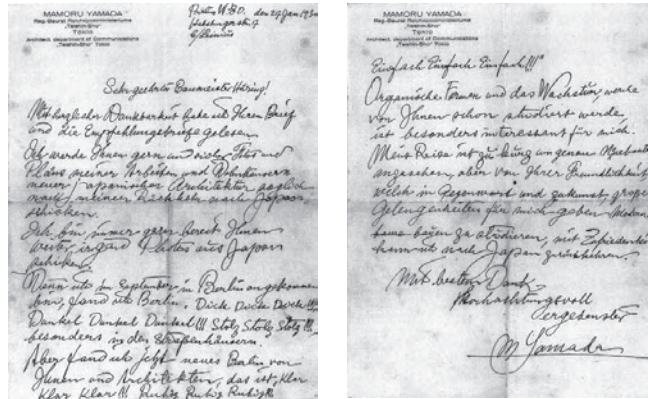 MAMORU YAMADA
Reg.-Baurat Reichspostministeriums
"Teishin-Sho" Tokio
Architect, department of Communications
"Teishin-Sho" Tokio
Berlin W.30. den 29 Jan 1930
Sehr geehrter Baumeister Häring!
Mit herzlicher Dankbarkeit habe ich Ihren Brief
und die Empfehlungsbriefe gelesen.
Ich werde Ihnen gern und Fotos und
Pläne meiner Arbeiten und Wohnhäusern
neuer japanischer Architektur sogleich
nach meiner Rückkehr nach Japan
schicken.
Ich bin immer gern bereit Ihnen
weiter irgend Photos aus Japan
schicken.
Denn ich im September in Berlin angekommen
bin, fand ich Berlin. Dick Dick Dick!!!
Dunkel Dunkel Dunkel!!! Stolz Stolz Stolz!!!
besonders in den Straßenhäusern.
Aber fand ich jetzt neues Berlin von
Ihnen und Architekten, das ist, Klar
Klar Klar!!! Ruhig Ruhig Ruhig!!!
MAMORU YAMADA
Reg.-Baurat Reichspostministeriums
"Teishin-Sho"
Tokio
Architect, department of Communications
"Teishin-Sho" Tokio
Einfach Einfach Einfach!!!"
Organische Formen und das Wachstum, welche
von Ihnen schon studiert werde,
ist besonders interessant für mich.
Meine Reise ist zu kurz um genau
angesehen, aber von Ihrer Freundlichkeit
welch in Gegenwart und Zukunft große
Gelegenheiten für mich geben
zu studieren, mit Zufriedenheit
kann ich nach Japan zurückkehren.
Mit bestem Dank
Hochachtungsvoll
ergebenster
M Yamada